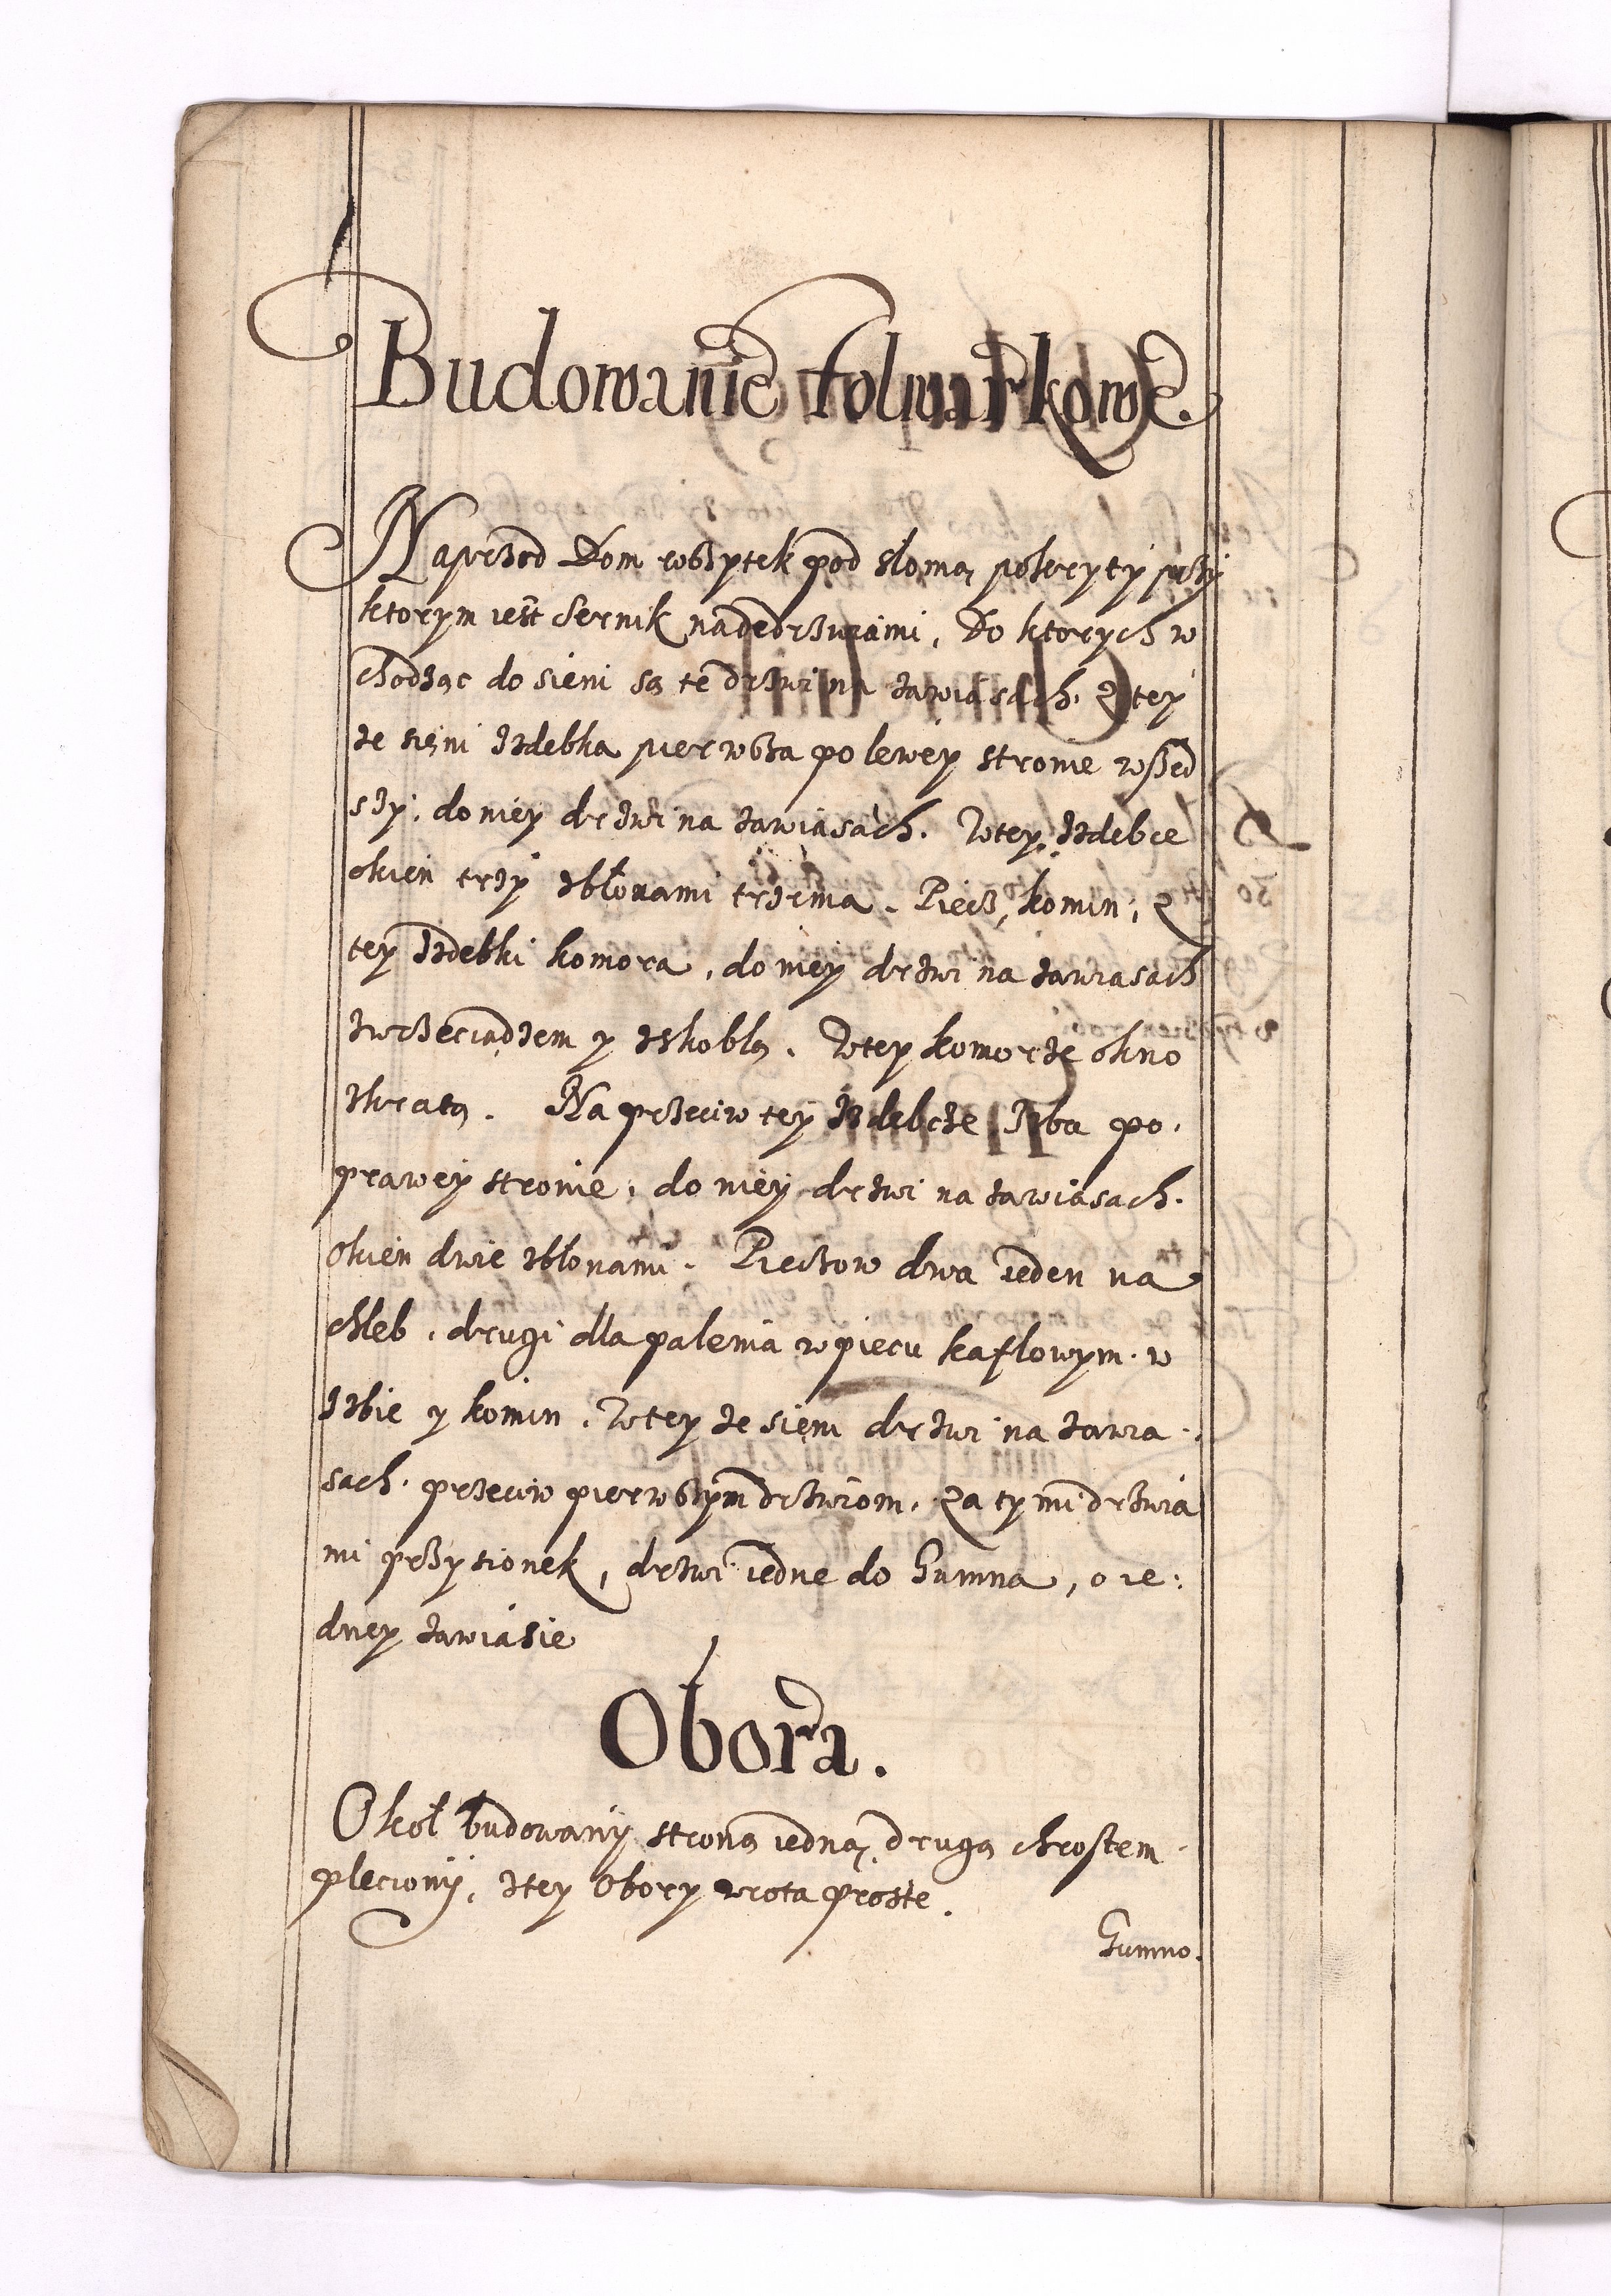 Budowanie folwarkowe.
Naprzod Dom wszytek pod słomą pokryty przy
ktorym iest Sernik nadedrzwiami, Do ktorych w
chodząc do sieni są te drzwi na zawiasach. Z tey
ze sieni Izdebka pierwsza po lewey stronie wszed
szy, do niey drzwi na zawiasach. W tey Izdebce
okien trzy zbłonami trzema. Piec, komin, z
tey Izdebki komora, do niey drzwi na zawiasach
zwrzeciądzem y zskoblą. W tey komorze okno
zkratą. Na przeciw tey Izdebcze Izba po,
prawey stronie, do niey drzwi na zawiasach.
Okien dwie zbłonami. Pieczow dwa ieden na
chleb, drugi dla palenia w piecu kaflowym. w
Izbie y komin. W tey ze sieni drzwi na zawia:
sach. przeciw pierwszym drzwiom. Za tymi drzwia
mi przysionek, drzwi iedne do Gumna, o ie:
dney zawiasie
Obora.
Okoł budowany stroną iedną, drugą chrostem
pleciony, ztey Obory wrota proste.
Gumno.